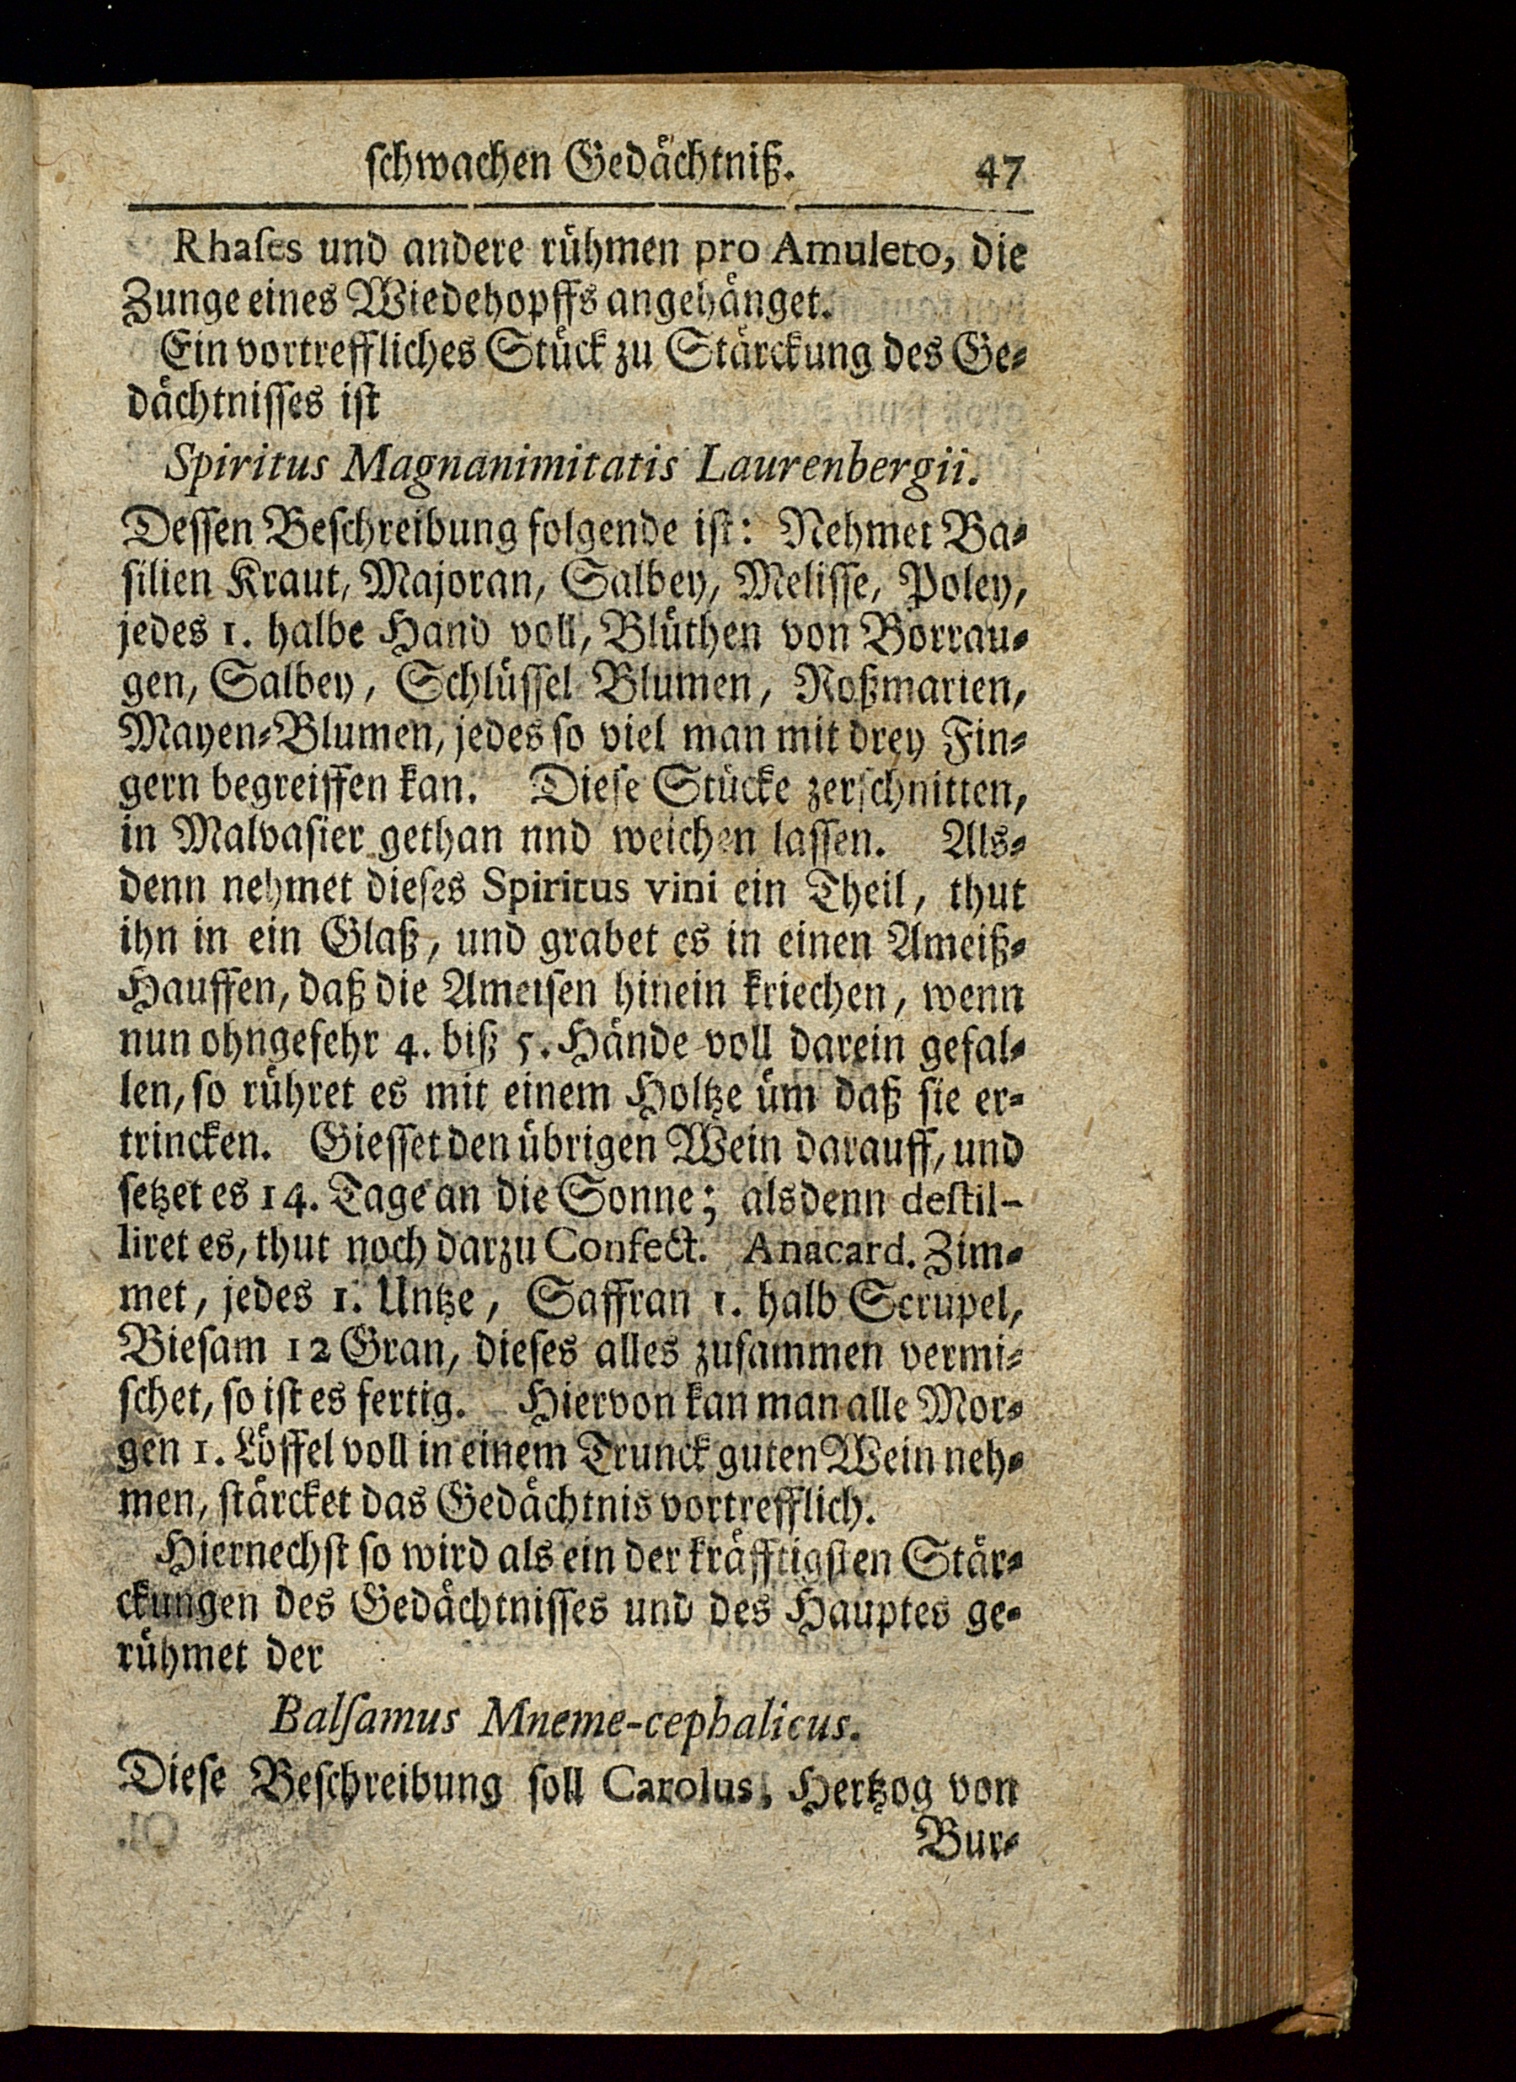 schwachen Gedächtniß. 47
Rhases und andere rühmen pro Amuleto, die
Zunge eines Wiedehopffs angehänget.
Ein vortreffliches Stück zu Stärckung des Ge-
dächtnisses ist
Spiritus Magnanimitatis Laurenbergii.
Dessen Beschreibung folgende ist: Nehmet Ba-
silien Kraut, Majoran, Salbey, Melisse, Poley,
jedes 1. halbe Hand voll, Blüthen von Borrau-
gen, Salbey, Schlüssel Blumen, Roßmarien,
Mayen-Blumen, jedes so viel man mit drey Fin-
gern begreiffen kan. Diese Stücke zerschnitten,
in Malvasier gethan nnd weichen lassen. Als-
denn nehmet dieses Spiritus vini ein Theil, thut
ihn in ein Glaß, und grabet es in einen Ameiß-
Hauffen, daß die Ameisen hinein kriechen, wenn
nun ohngefehr 4. biß 5. Hände voll darein gefal-
len, so rühret es mit einem Holtze üm daß sie er-
trincken. Giesset den übrigen Wein darauff, und
setzet es 14. Tage an die Sonne; alsdenn destil-
liret es, thut noch darzu Confect. Anacard. Zim-
met, jedes 1. Untze, Saffran 1. halb Scrupel,
Biesam 12 Gran, dieses alles zusammen vermi-
schet, so ist es fertig. Hiervon kan man alle Mor-
gen 1. Löffel voll in einem Trunck guten Wein neh-
men, stärcket das Gedächtnis vortrefflich.
Hiernechst so wird als ein der kräfftigsten Stär-
ckungen des Gedächtnisses und des Hauptes ge-
rühmet der
Balsamus Mneme-cephalicus.
Diese Beschreibung soll Carolus, Hertzog von
Bur-